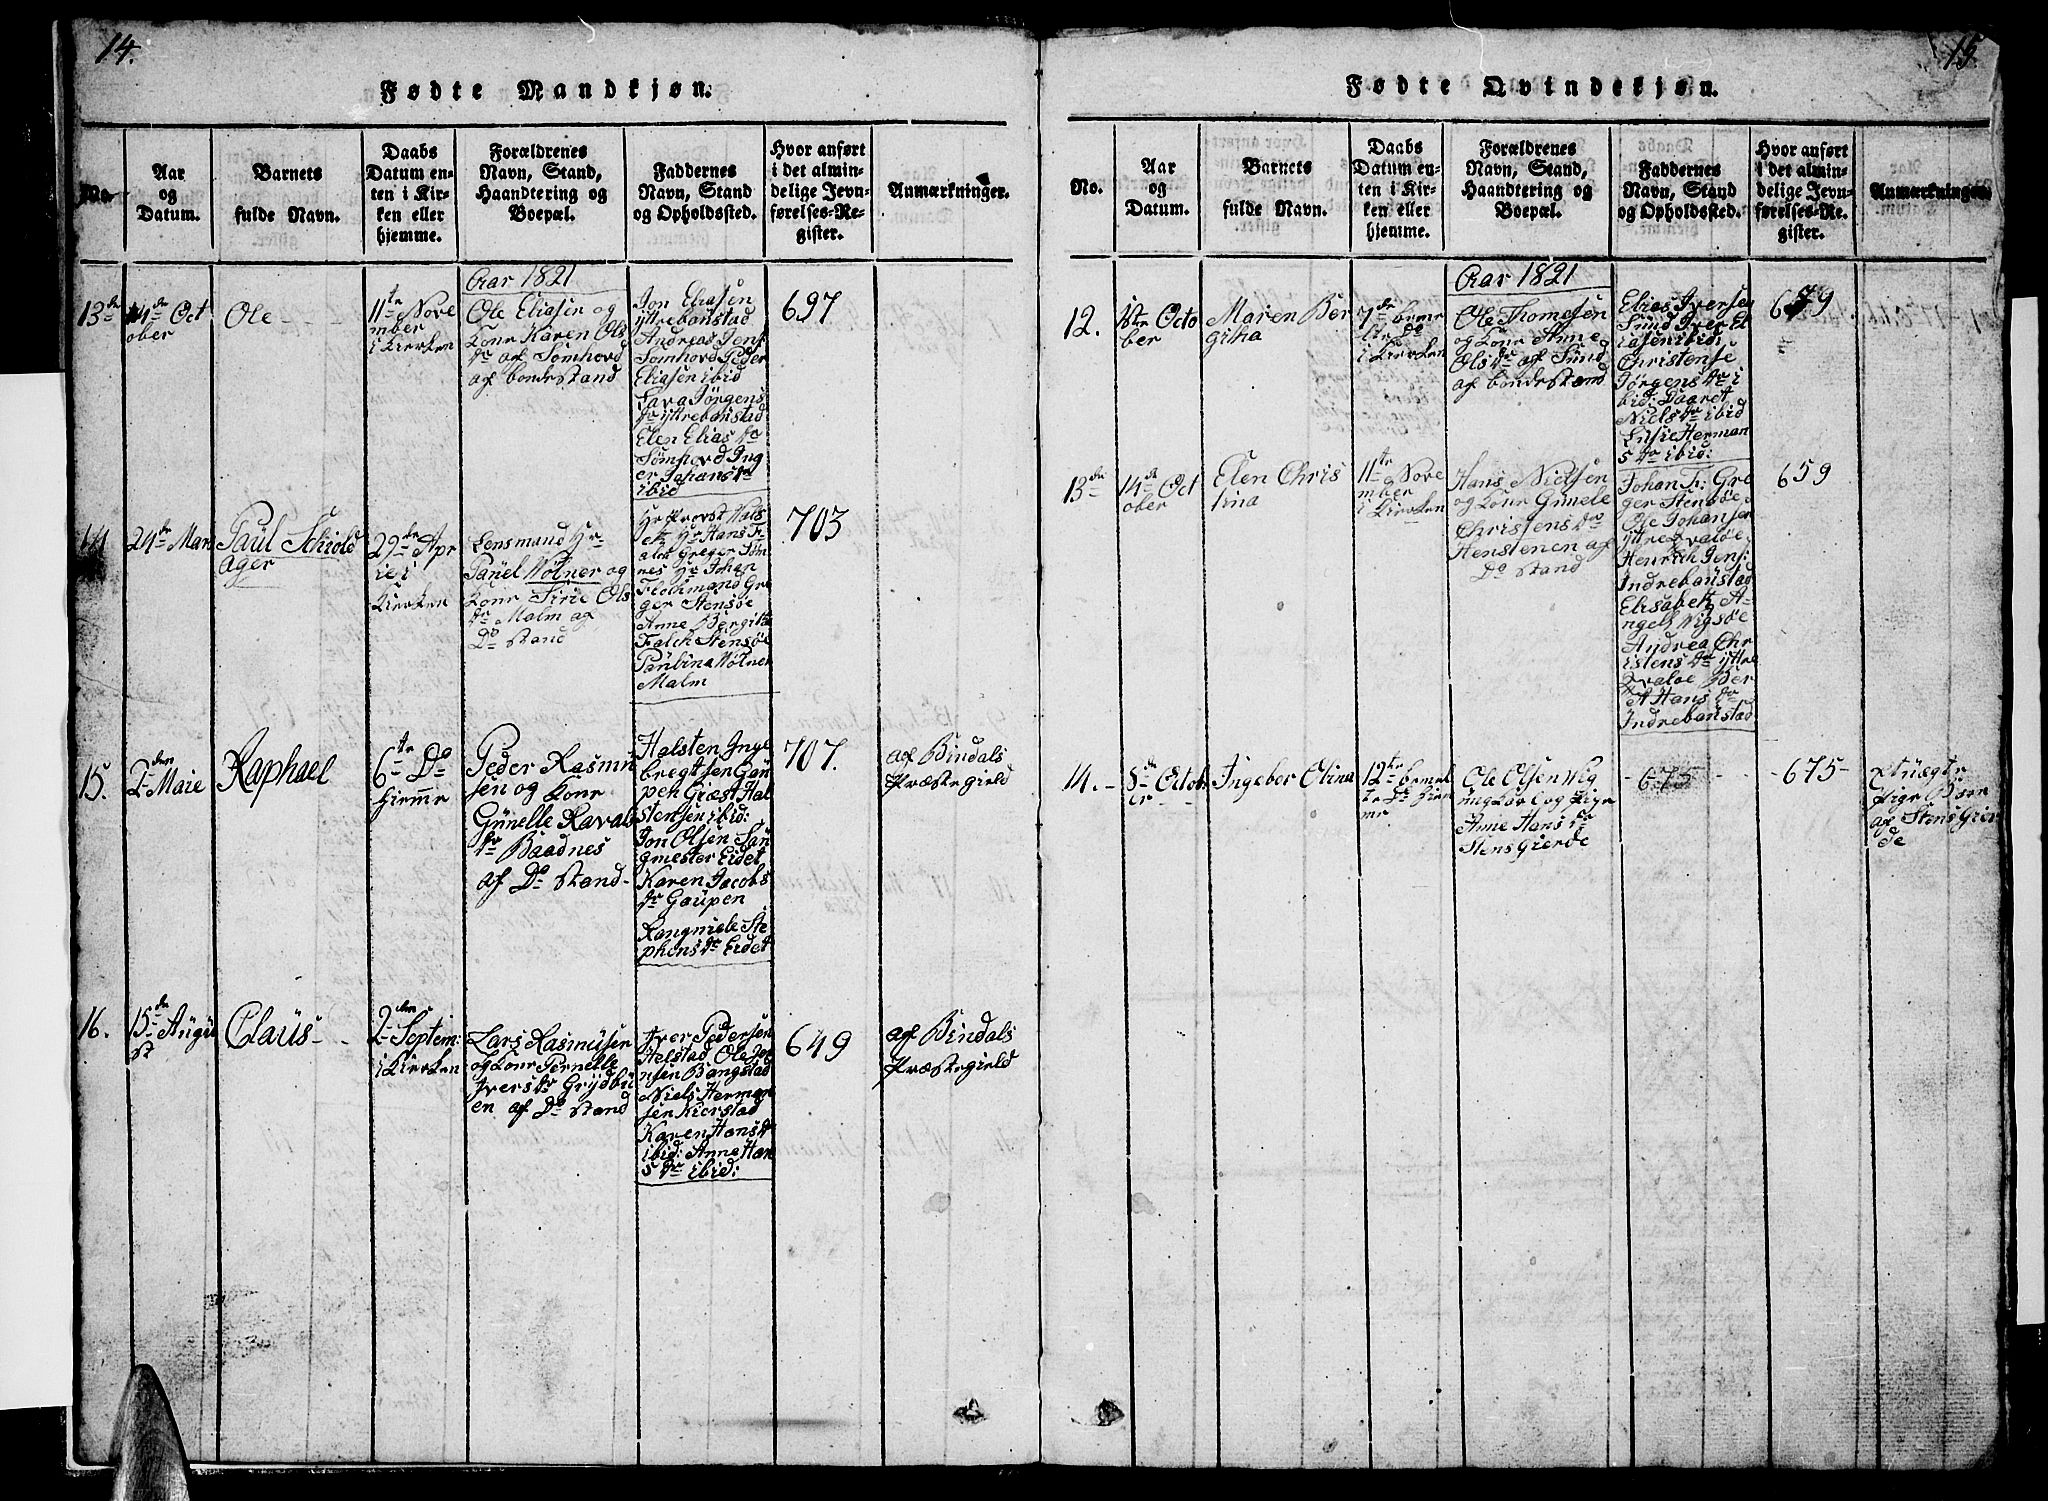 14.
Fødte Mandkjøn.
No.
Aar
og
Datum.
Barnets
fulde Navn.
Daabs
Datum en-
ten i Kir-
ken eller
hjemme.
Forældrenes
Navn, Stand,
Haandtering og
Boepæl.
Faddernes
Navn, Stand
og Opholdssted.
Hvor anført
i det almin-
delige Jevn-
førelses-Re-
gister.
Anmærkninger.
Aar 1821
13de
14de Oct
ober
Ole
11te Nove
mber
i Kierken
Ole Eliasen og
Kone Karen Ols
dr af Sømhovd
af bondestand
Jon Eliasen
yttrebanstad
Andreas Jens
Sømhovd Peder
Eliasen ibid
Sava Jørgens
dr yttrebanstad
Elen Elias dr
Sømhovd Ing
er Johans dr
ibid
697
14
24de Mars
Paul Schiold
ager
29de Apr
il i
Kierken
Lensmand Hr
Panel Wølner og
Kone Sirie Ols
dr Malm af
Do stand
Hr Provst
Hr Hans F
alch Greger Søm
nes Hr Johan
Flothmand Gre
ger Stensøe
Anne Bergitte
Falch Stensøe
Paulina Wølner
Malm
703
15.
2den Maie
Raphael
6te Do
hiemme
Peder Rasmu
sen og Kone
Gunelle Ravals
dr Baadnes
af Do stand
Halsten Inge
bregtsen Gau
pen Giæst Hal
stensen ibid:
Jon Olsen San
gmester Eidet
Karen Jacobs
dr Gaupen
Rangniele Ste
phens dr Eidet
707.
af Bindals
Præstegield
16.
15de Augu
st
Claus
2den Septem:
i Kierken
Lars Rasmusen
og Kone Pernelle
Ivers dr Grydbu
en af Do stand
Iver Pedersen
Helstad Ole Jo
nsen Bangstad
Niels Herman
sen Kierstad
Karen Hans dr
ibid: Anne Han
s dr ibid:
649
af Bindals
Præstegield
15
Fødte Qvindekjøn.
No.
Aar
og
Datum.
Barnets
fulde Navn.
Daabs
Datum en-
ten i Kir-
ken eller
hjemme.
Forældrenes
Navn, Stand,
Haandtering og
Boepæl.
Faddernes
Navn, Stand
og Opholdssted.
Hvor anført
i det almin-
delige Jevn-
førelses-Re-
gister.
Anmærkninger.
Aar 1821
12.
Octo
ber
Maren Ber
githa
7de
Do
i Kierken
Ole Thomesen
og Kone Anne
Ols dr af Sund
af bondestand
Elias Iversen
Sund Iver El
iasen ibid:
Christense
Jørgens dr i
bid: Daaret
Niels dr ibid
Lusie Herman
s dr ibid:
679
13de
14de Oct
ober
Elen Chris
tina
11te Nove
mber
i Kierken
Hans Nielsen
og Kone Gunele
Christens dr
Henstenen af
Do stand
Johan Fr: Gre
ger Stensøe
Ole Johansen
yttre Kvaløe
Henrich Jens:
Indrebanstad
Elisabeth A
ngels Vigsøe
Andrea Chr
istens dr yttre
Kvaløe Ber
it Hans dr
Indrebanstad
659
14.
8de Octob
er
Ingeber Olina
12te
Do hiem
me
Ole Olsen Vig
ung Karl og Pige
Anne Hans dr
Stensgierde
675
675
Uægte
Pige Barn
af Stensgier
de